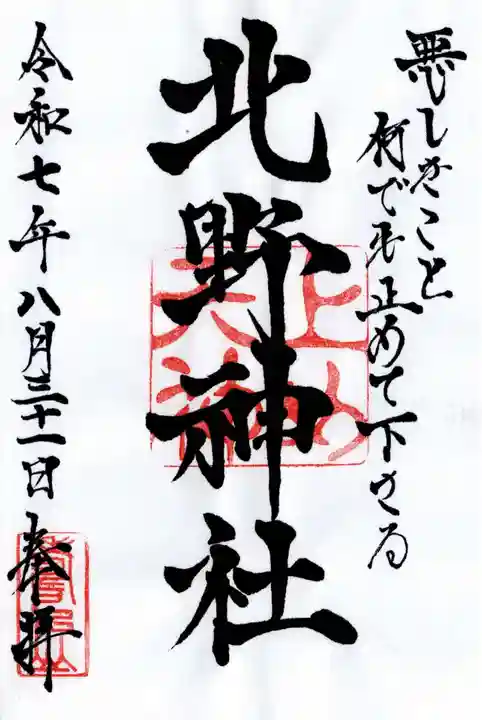 悪しきこと
何でも止めて下さる
北野神社
令和七年八月三十一日
奉拝